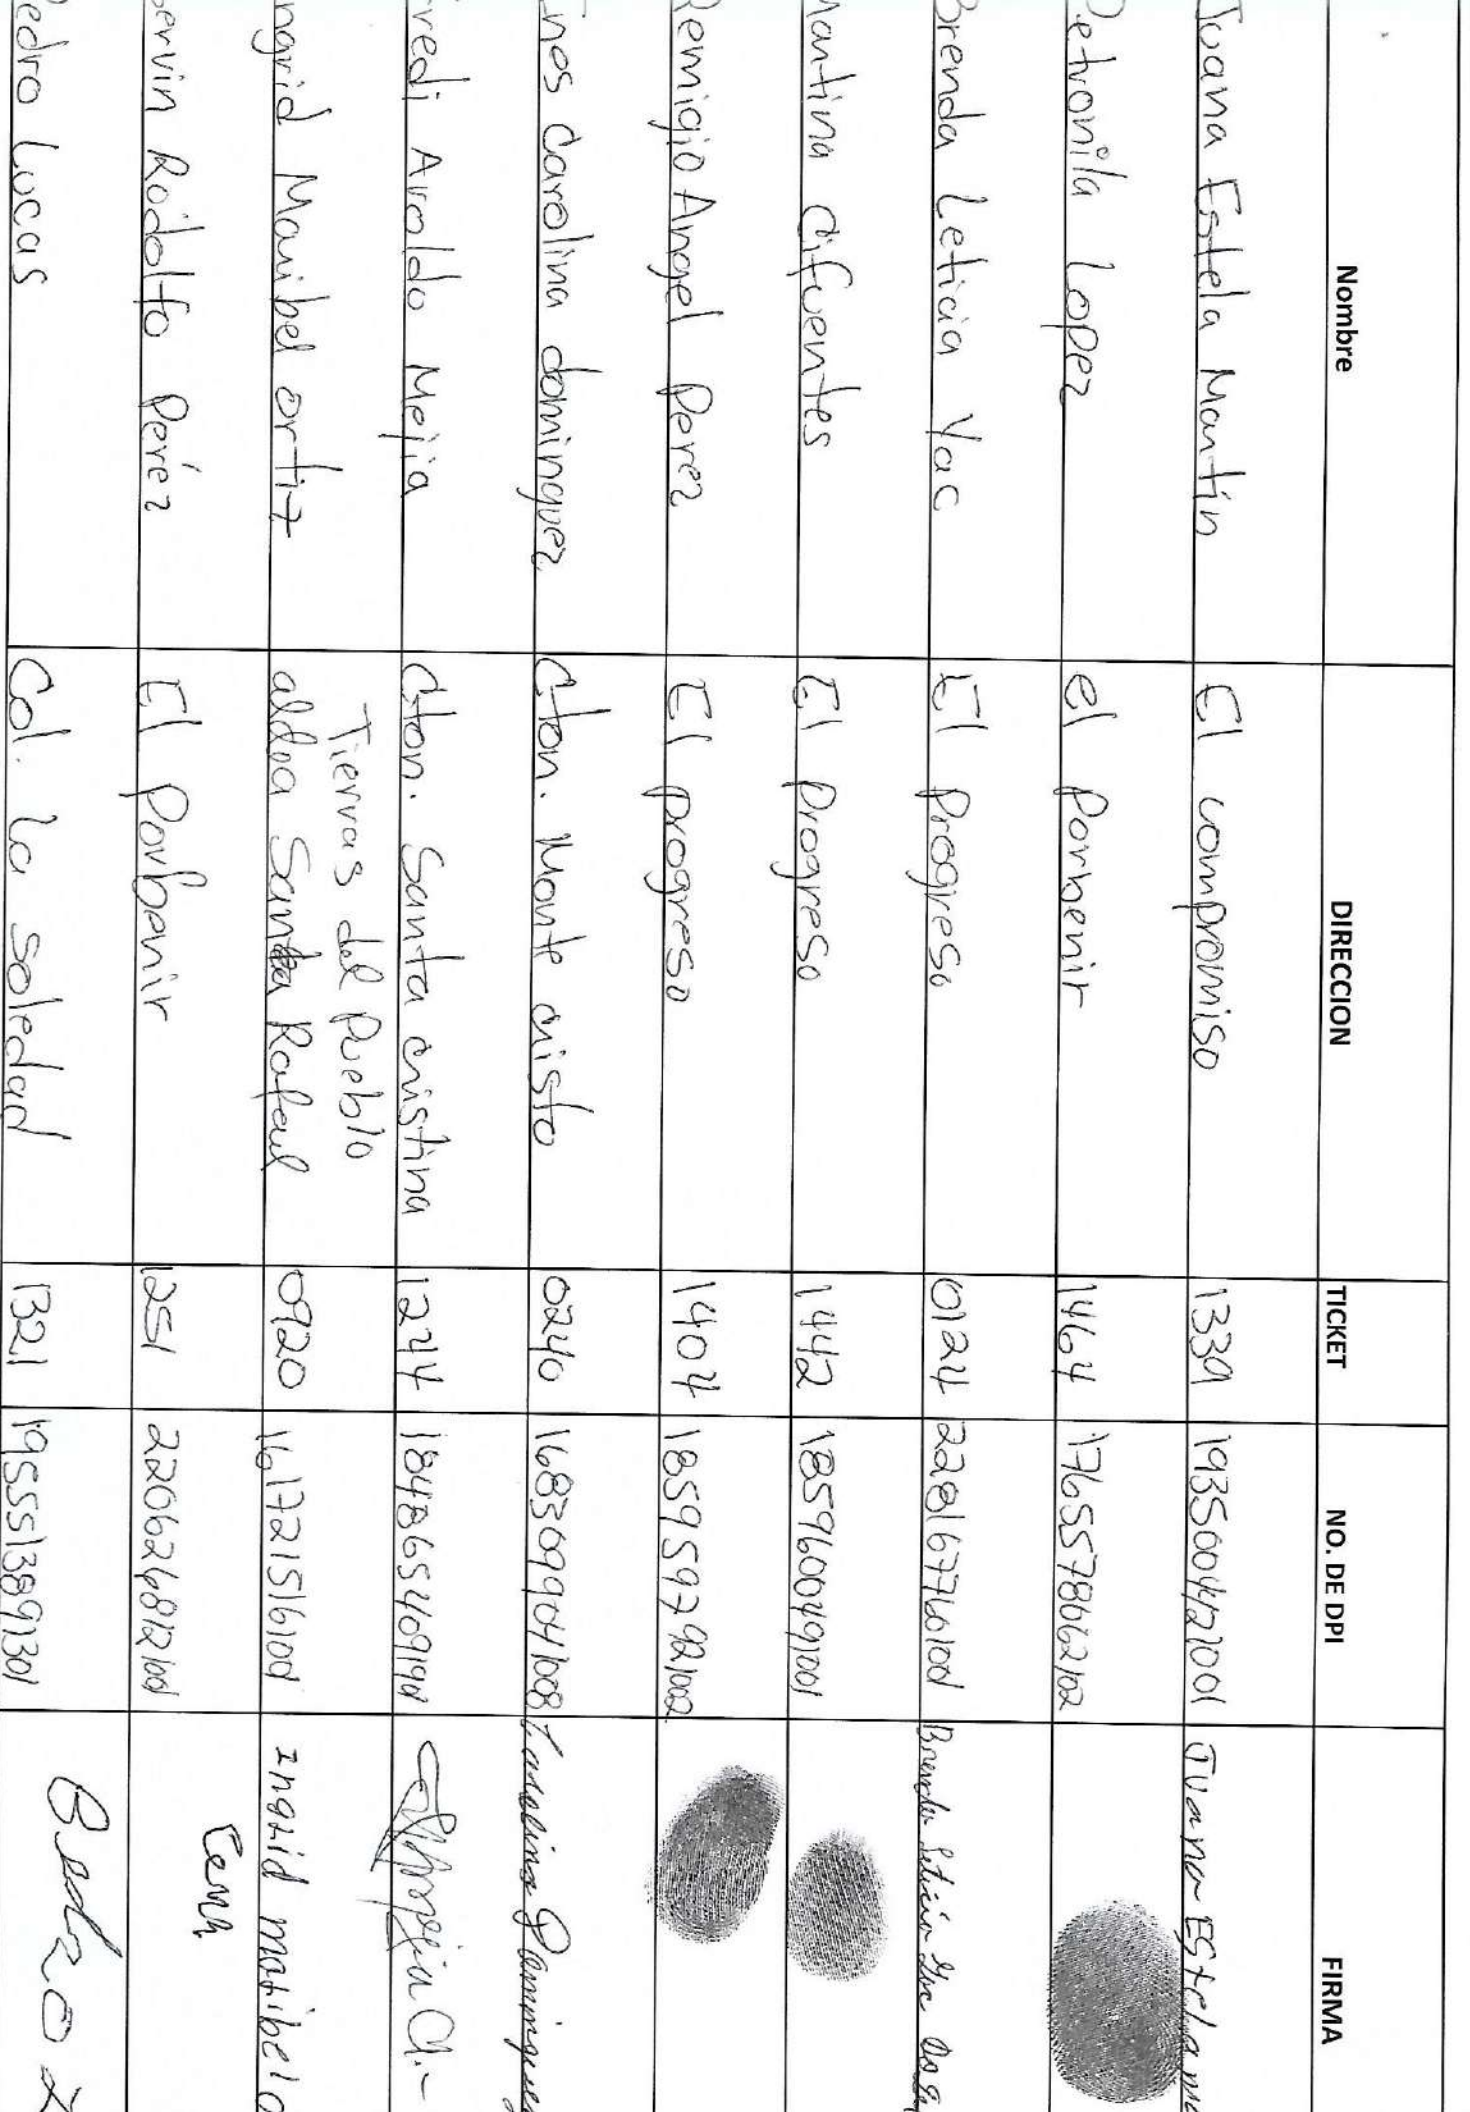 Nombre DIRECCION TICKET NO. DE DPI FIRMA
Juana Estela Martín El compromiso 1339 1935004421001 Juana Estela
Petronila Lopez el Porbenir 1464 1765578662102
Brenda Leticia Yac El Progreso 0124 Brenda Leticia Yac
Martina Cifuentes El Progreso 1442 1859600491001
Remigio Angel Perez El progreso 1404 1859597921002
Ines Carolina dominguez Cton. Monte cristo 0240 1683099041008 Carolina Dominguez
Fredi Aroldo Mejia Cton. Santa cristina 1244
Tierras del Pueblo
Ingrid Maribel ortiz aldea Santa Rafael 0920 Ingrid maribel o
ervin Rodolfo Peréz El Porbenir 1251
edro Lucas Col. La Soledad 1321 1955513891301 Pedro L